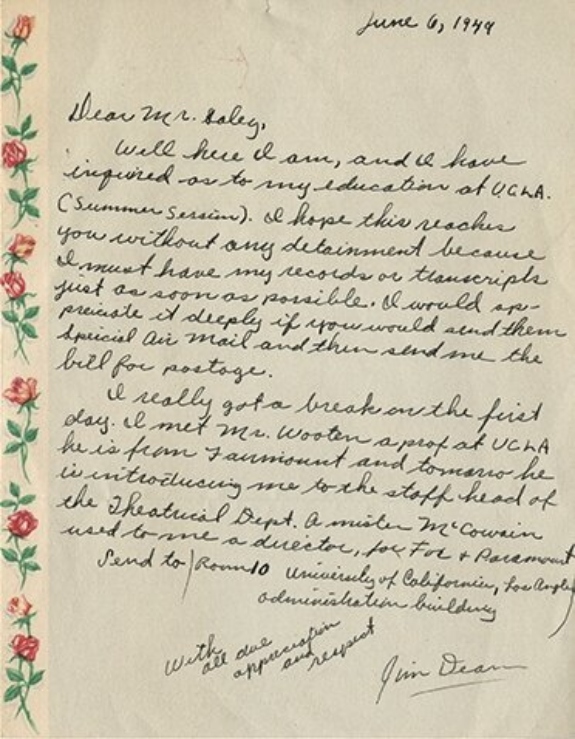 June 6, 1949
Dear Mr. Haley,
Well here I am, and I have
inquired as to my education at UCLA.
(Summer Session). I hope this reaches
you without any detainment because
I must have my records or transcripts
just as soon as possible. I would ap-
preciate it deeply if you would send them
Speicial Air Mail and then send me the
bill for postage.
I really got a break on the first
day. I met Mr. Wooten a prof at UCLA
he is from Fairmount and tomarro he
is introducing me to the staff head of
the Theatrical Dept. A mister McCowain
used to me a director, for Fox & Paramount
Send to (Room 10 University of California, Los Angeles
administration building)
With
all due
appreciation
and respect
Jim Dean